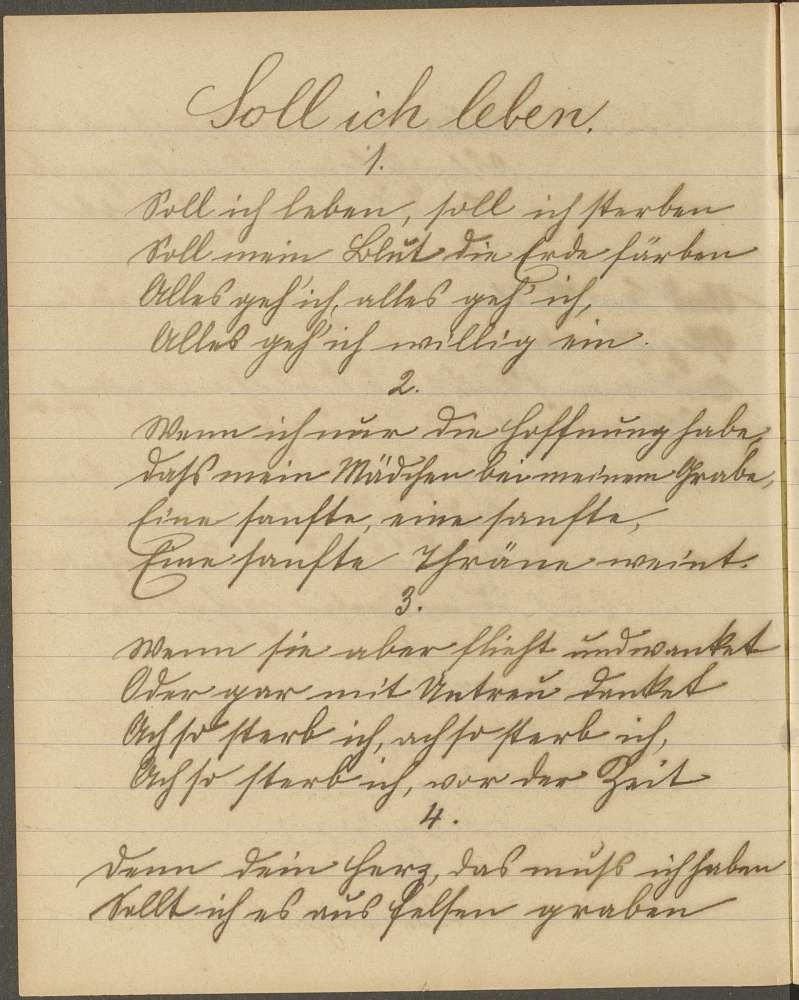 Soll ich leben.
1.
Soll ich leben, soll ich sterben
Soll mein Blut die Erde färben
Alles geh' ich, alles geh' ich,
Alles geh' ich willig ein.
2.
Wenn ich nur die Hoffnung habe,
dass mein Mädchen bei meinem Grabe,
Eine sanfte, eine sanfte,
Eine sanfte Thräne weint.
3.
Wenn sie aber flieht und wanket
Oder gar mit Untreu danket
Ach so sterb ich, ach so sterb ich,
Ach so sterb ich, vor der Zeit
4.
Denn dein Herz, das muss ich haben
Sollt ich es aus Felsen graben